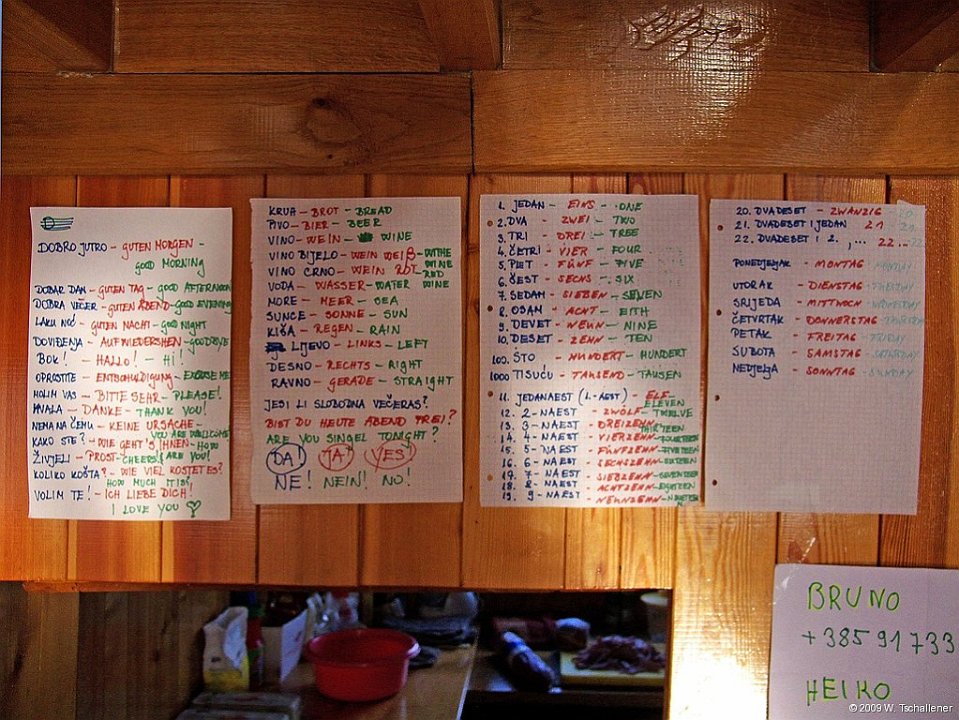 DOBRO JUTRO - GUTEN MORGEN -
GOOD MORNING
DOBAR DAN - GUTEN TAG - GOOD AFTERNOON
DOBRA VEČER - GUTEN ABEND - GOOD EVENING
LAKU NOĆ - GUTEN NACHT - GOOD NIGHT
DOVIĐENJA - AUFWIEDERSHEN - GOODBYE
BOK! - HALLO! - HI!
OPROSTITE - ENTSCHULDIGUNG - EXCUSE ME
MOLIM VAS - BITTE SEHR - PLEASE!
HVALA - DANKE - THANK YOU!
NEMA NA ČEMU - KEINE URSACHE -
YOU ARE WELLCOME
KAKO STE? - WIE GEHT'S IHNEN - HOW
ARE YOU!
ŽIVJELI - PROST - CHEERS!
KOLIKO KOŠTA? - WIE VIEL KOSTET ES?
HOW MUCH IT IS?
VOLIM TE! - ICH LIEBE DICH!
I LOVE YOU
KRUH - BROT - BREAD
PIVO - BIER - BEER
VINO - WEIN - WINE
VINO BIJELO - WEIN WEIß - WITHE WINE
VINO CRNO - WEIN ROT - RED WINE
VODA - WASSER - WATER
MORE - MEER - SEA
SUNCE - SONNE - SUN
KIŠA - REGEN - RAIN
LIJEVO - LINKS - LEFT
DESNO - RECHTS - RIGHT
RAVNO - GERADE - STRAIGHT
JESI LI SLOBODNA VEČERAS?
BIST DU HEUTE ABEND FREI?
ARE YOU SINGEL TONIGHT?
DA! JA! YES!
NE! NEIN! NO!
1. JEDAN - EINS - ONE
2. DVA - ZWEI - TWO
3. TRI - DREI - TREE
4. ČETRI - VIER - FOUR
5. PET - FÜNF - FIVE
6. ŠEST - SECHS - SIX
7. SEDAM - SIEBEN - SEWEN
8. OSAM - ACHT - EITH
9. DEVET - NEUN - NINE
10. DESET - ZEHN - TEN
100. STO - HUNDERT - HUNDERT
1000 TISUĆU - TAUSEND - TAUSEN
11. JEDANAEST (1.-AEST) - ELF -
ELEVEN
12. 2-NAEST - ZWÖLF - TWELVE
13. 3-NAEST - DREIZEHN - THIRTEEN
14. 4-NAEST - VIERZEHN - FOURTEEN
15. 5-NAEST - FÜNFZEHN - FIVETEEN
16. 6-NAEST - SECHSZEHN - SIXTEEN
17. 7-NAEST - SIEBZEHN - SEVENTEEN
18. 8-NAEST - ACHTZEHN - EIGHTEEN
19. 9-NAEST - NEUNZEHN - NINETEEN
20. DVADESET - ZWANZIG - 20.
21. DVADESET I JEDAN 21
22. DVADESET I 2., ... 22...
PONEDJELJAK - MONTAG - MONDAY
UTORAK - DIENSTAG - TUESDAY
SRIJEDA - MITTWOCH - WEDNESDAY
ČETVRTAK - DONNERSTAG - THURSDAY
PETAK - FREITAG - FRIDAY
SUBOTA - SAMSTAG - SATURDAY
NEDJELJA - SONNTAG - SUNDAY
BRUNO
+385 91 733
HEIKO
© 2009 W. Tschallener